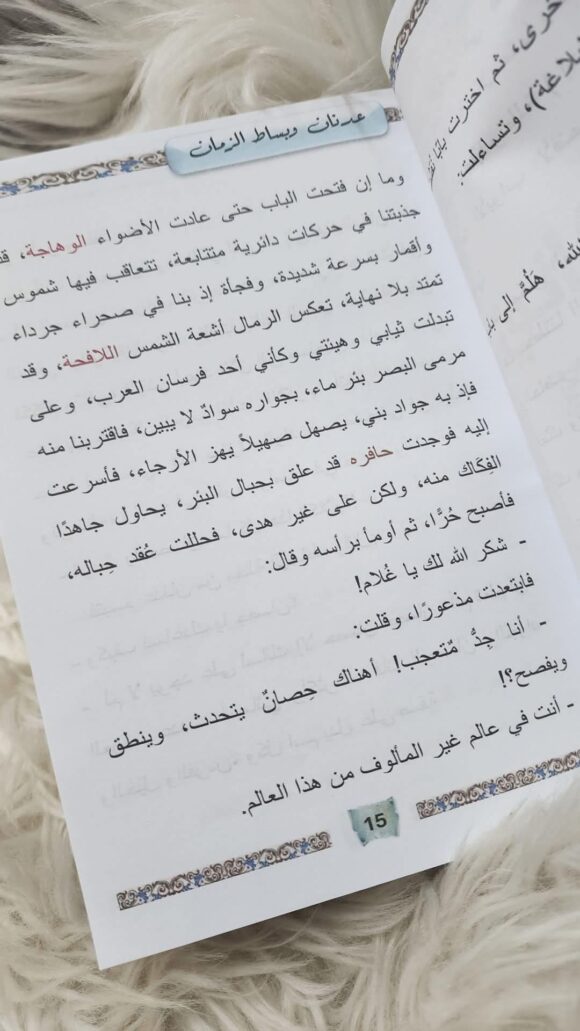 خرى، ثم اخترت بابًا
بلاغة)، وتساءلت:
الله، هَلُمَّ إلى
عدنان وبساط الزمان
وما إن فتحت الباب حتى عادت الأضواء الوهاجة، قد
جذبتنا في حركات دائرية متتابعة، تتعاقب فيها شموس
وأقمار بسرعة شديدة، وفجأة إذ بنا في صحراء جرداء
تمتد بلا نهاية، تعكس الرمال أشعة الشمس اللافحة، وقد
تبدلت ثيابي وهيئتي وكأني أحد فرسان العرب، وعلى
مرمى البصر بئر ماء، بجواره سوادٌ لا يبين، فاقتربنا منه
فإذ به جواد بني، يصهل صهيلاً يهز الأرجاء، فأسرعت
إليه فوجدت حافره قد علق بحبال البئر، يحاول جاهدًا
الفِكَاك منه، ولكن على غير هدى، فحللت عُقد حِباله،
فأصبح حُرًّا، ثم أومأ برأسه وقال:
- شكر الله لك يا غُلام!
فابتعدت مذعورًا، وقلت:
- أنا جِدُّ مُتعجب! أهناك حِصانٌ يتحدث، وينطق
ويفصح؟!
- أنت في عالم غير المألوف من هذا العالم.
15